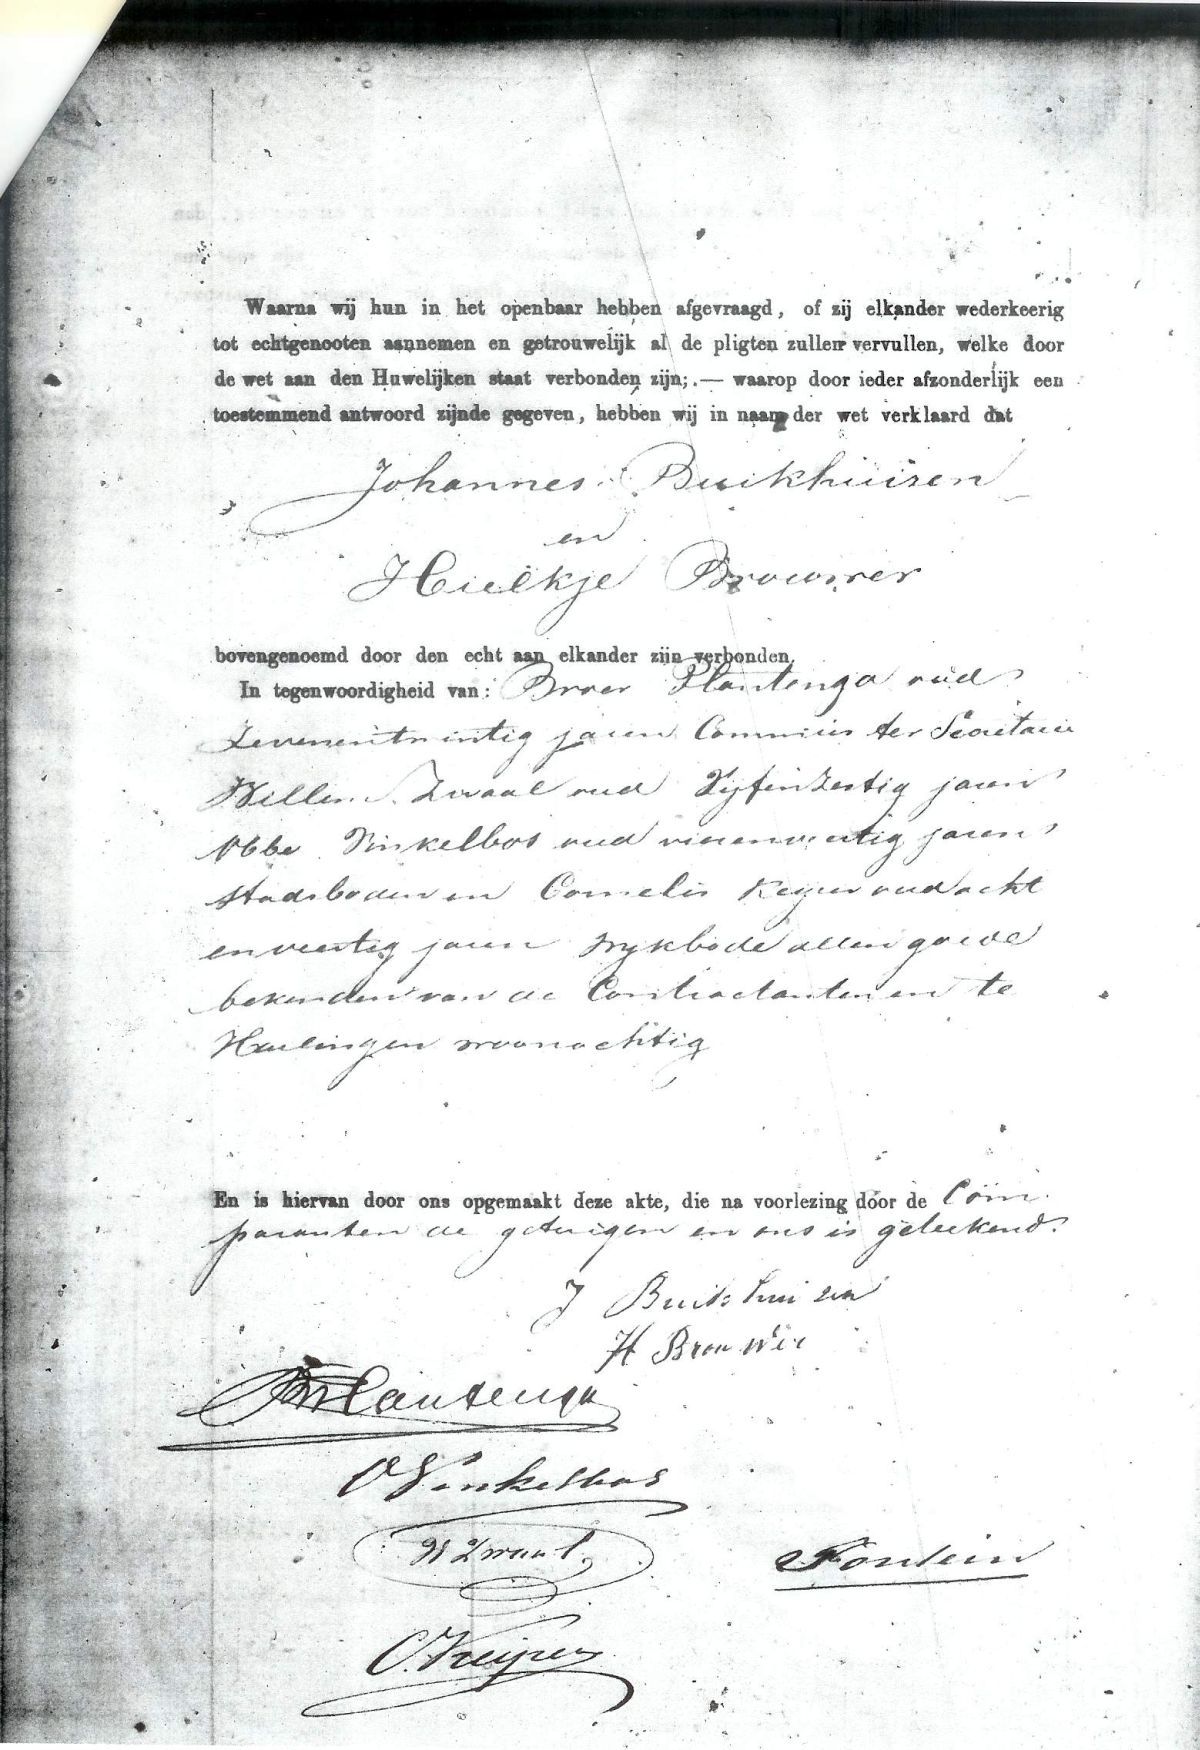 Waarna wij hun in het openbaar hebben afgevraagd, of zij elkander wederkeerig
tot echtgenooten aannemen en getrouwelijk al de pligten zullen vervullen, welke door
de wet aan den Huwelijken staat verbonden zijn;.— waarop door ieder afzonderlijk een
toestemmend antwoord zijnde gegeven, hebben wij in naam der wet verklaard dat
Johannes Buikhuisen
en
Hielkje Brouwer
bovengenoemd door den echt aan elkander zijn verbonden.
In tegenwoordigheid van: Broer Plantenga oud
Zevenentwintig jaren Commies ter Secretarie
Willem Zwaal oud Vijfenzestig jaren
Obbe Vinkelbos oud vierenveertig jaren
Stadsboden en Cornelis Keijer oud acht
enveertig jaren Rijkbode allen goede
bekenden van de Contractanten en te
Harlingen woonachtig
En is hiervan door ons opgemaakt deze akte, die na voorlezing door de Com
paranten de getuigen en ons is geteekend.
J Buikhuizen
H Brouwer
Plantenga
O Vinkelbos
W Zwaal
Fontein
C. Keijer